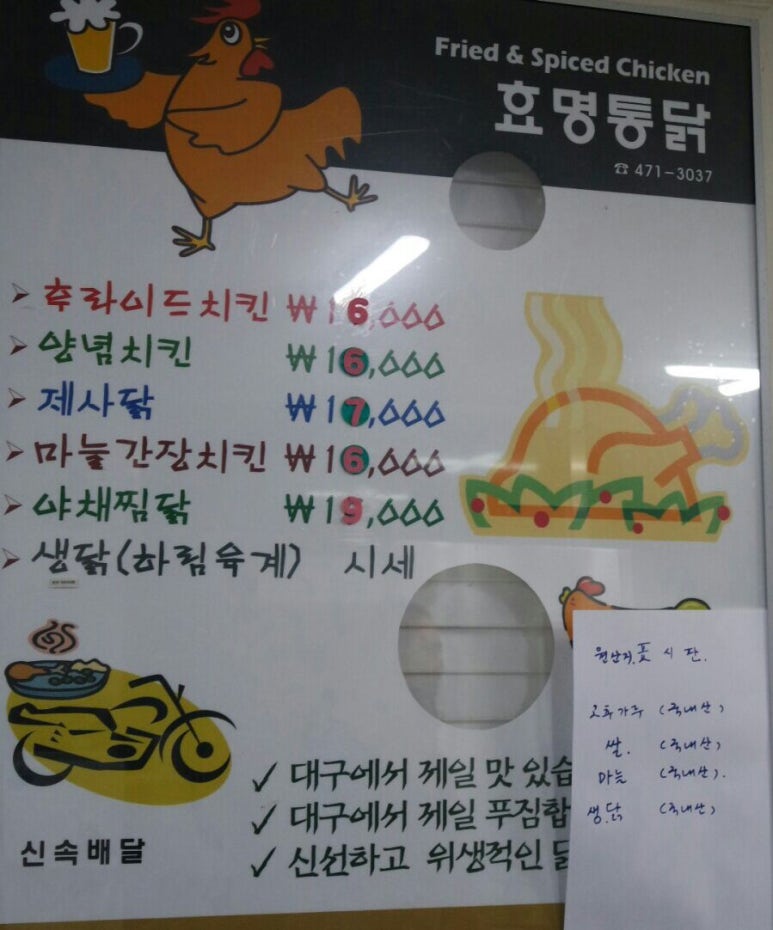 Fried & Spiced Chicken
효명통닭
☎ 471-3037
➢ 후라이드치킨 ₩16,000
➢ 양념치킨 ₩16,000
➢ 제사닭 ₩17,000
➢ 마늘간장치킨 ₩16,000
➢ 야채찜닭 ₩19,000
➢ 생닭(하림육계) 시세
신속배달
✓ 대구에서 제일 맛 있습
✓ 대구에서 제일 푸짐합
✓ 신선하고 위생적인
원산지.표시판.
고추가루 (국내산)
쌀. (국내산)
마늘 (국내산).
생닭 (국내산)